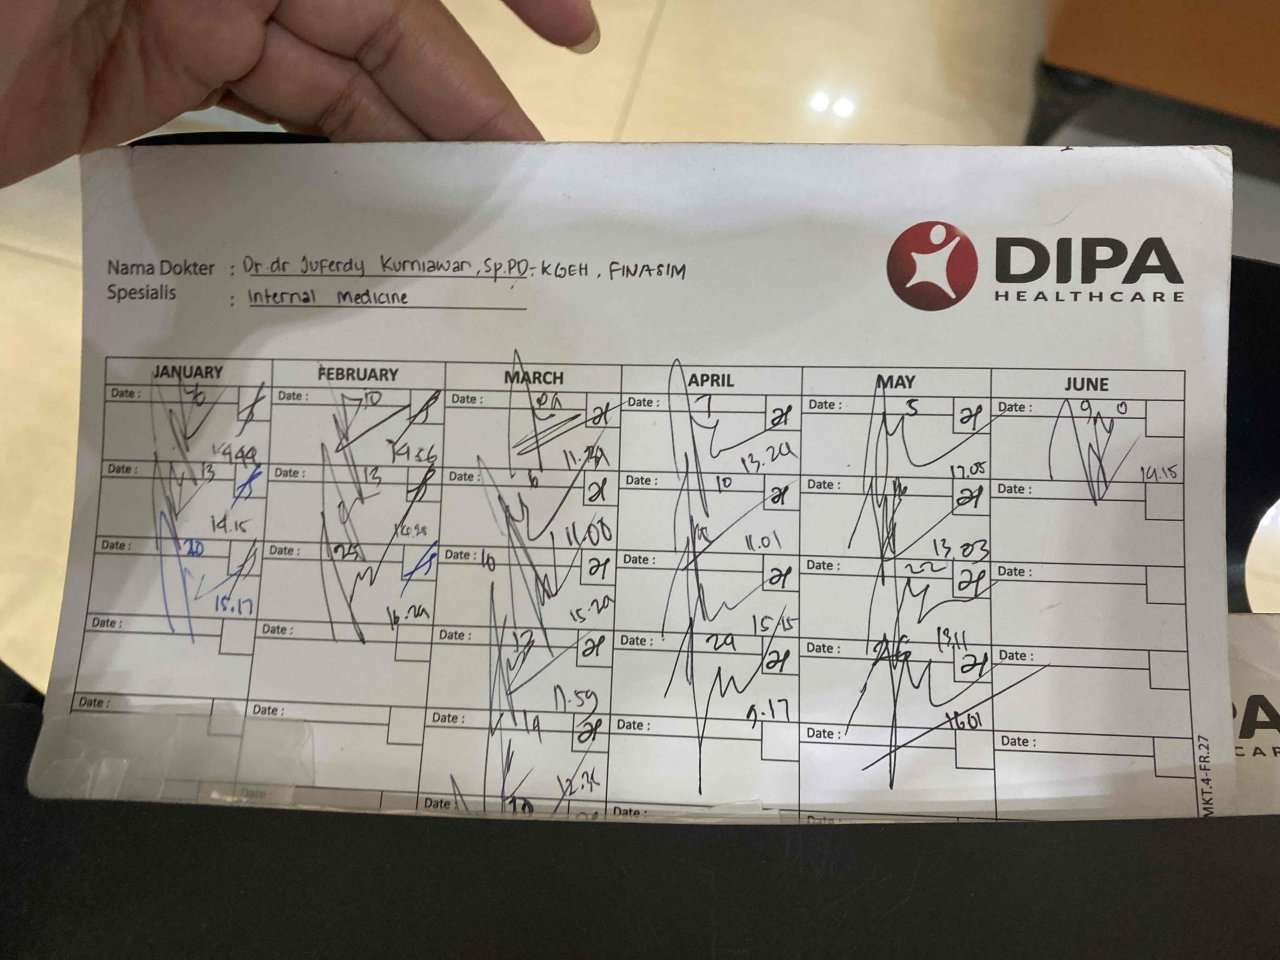 DIPA
HEALTHCARE
Nama Dokter : Dr. dr Juferdy Kurniawan, Sp.PD-KGEH, FINASIM
Spesialis : Internal Medicine
JANUARY FEBRUARY MARCH APRIL MAY JUNE
Date : 6 Date : 10 Date : Date : 7 Date : 5 Date : 9
14.49 14.56 11.29 13.29 17.05 19.15
Date : 13 Date : 13 Date : 6 Date : 10 Date : Date :
14.15 11.00 11.01 13.03
Date : 20 Date : 25 Date : 10 Date : Date : 22 Date :
15.17 16.29 15.29 15.15 13.11
Date : Date : Date : 13 Date : 29 Date : 26 Date :
11.59 9.17 16.01
Date : Date : Date : 19 Date : Date : Date :
Date Date Date : Date : Date :
MKT.4-FR.27